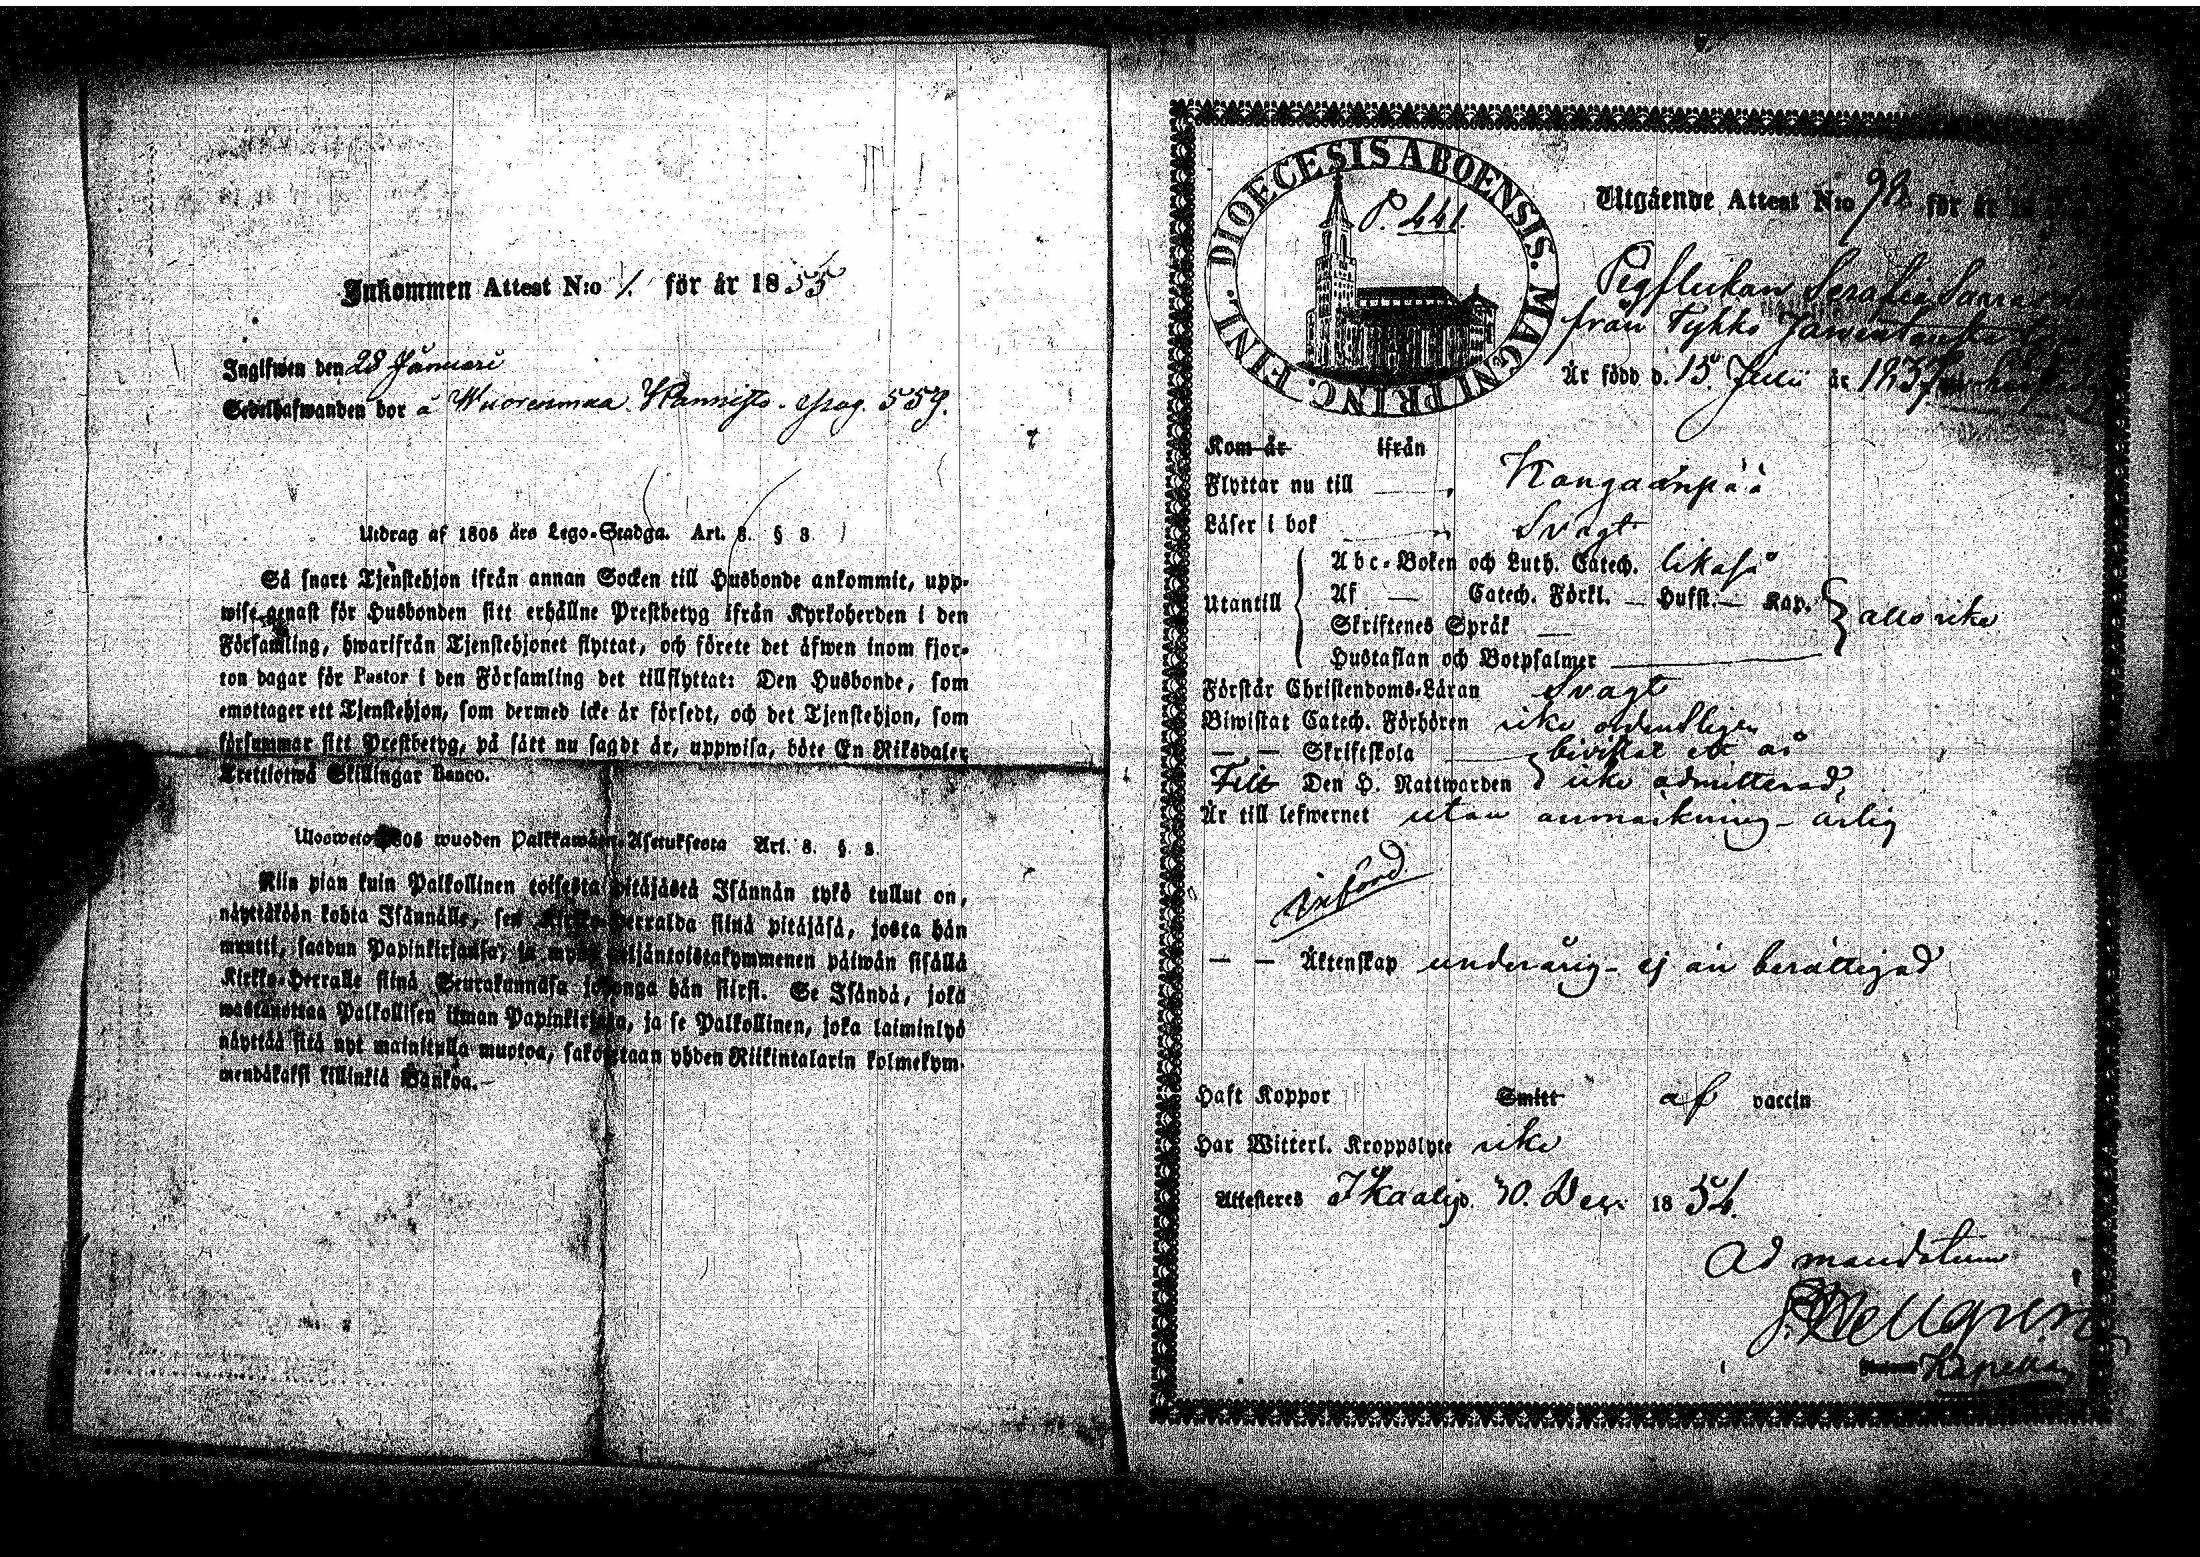 Inkommen Attest N:o 1. för år 1855
Ingifwen den 28 Januari
Sedelhafwanden bor å Wuorenmaa Kannisto. pag. 559.
Utdrag af 1805 års Lego-Stadga. Art. 8. § 3.
Så snart Tjenstehjon ifrån annan Socken till Husbonde ankommit, upp-
wise genast för Husbonden sitt erhållne Prestbetyg ifrån Kyrkoherden i den
Församling, hwarifrån Tjenstehjonet flyttat, och förete det äfwen inom fjor-
ton dagar för Pastor i den Församling det tillflyttat: Den Husbonde, som
emottager ett Tjenstehjon, som dermed icke är försedt, och det Tjenstehjon, som
försummar sitt Prestbetyg, på sätt nu sagdt är, uppwisa, böte En Riksdaler
Trettiotwå Skillingar Banco.
Ulosweto 1805 wuoden Palkkawäen-Asetuksesta Art. 8. §. 3.
Niin pian kuin Palkollinen toisesta pitäjästä Isännän tykö tullut on,
näyttäköön kohta Isännälle, sen Kirkko-Herralda siinä pitäjäsä, josta hän
muutti, saadun Papinkirjansa, ja myös neljäntoistakymmenen päiwän sisällä
Kirkko-Herralle siinä Seurakunnasa johonga hän siirsi. Se Isändä, joka
wastanottaa Palkollisen ilman Papinkirjata, ja se Palkollinen, joka laiminlyö
näyttää sitä nyt mainitulla muotoa, sakotetaan yhden Riikintalarin kolmekym-
mendäkaksi killinkiä Bankoa.
DIOECESIS ABOENSIS. MAGNI PRINC. FINL.
P. 441.
Utgående Attest N:o 92 för år
Pigflickan Serafia
från Tykkö
Är född d. 15. Julii år 1837
Kom år ifrån
Flyttar nu till Kangaanpää
Läser i bok Svagt
Utantill
Abc-Boken och Luth. Catech. likaså
Af — Catech. Förkl. — Husst. — Kap.
Skriftenes Språk —
alls icke
Hustaflan och Botpsalmer
Förstår Christendoms-Läran Svagt
Biwistat Catech. Förhören icke ordentligen
— — Skriftskola bivistat ett år
Den H. Nattwarden icke admitterad,
Är till lefwernet utan anmärkning - ärlig
införd
— — Äktenskap underårig - ej än berättigad
Haft Koppor Smitt af vaccin
Har Witterl. Kroppslyte icke
Attesteres Ikaalis d. 30. Dec. 1854.
Ad mandatum
Kapellan